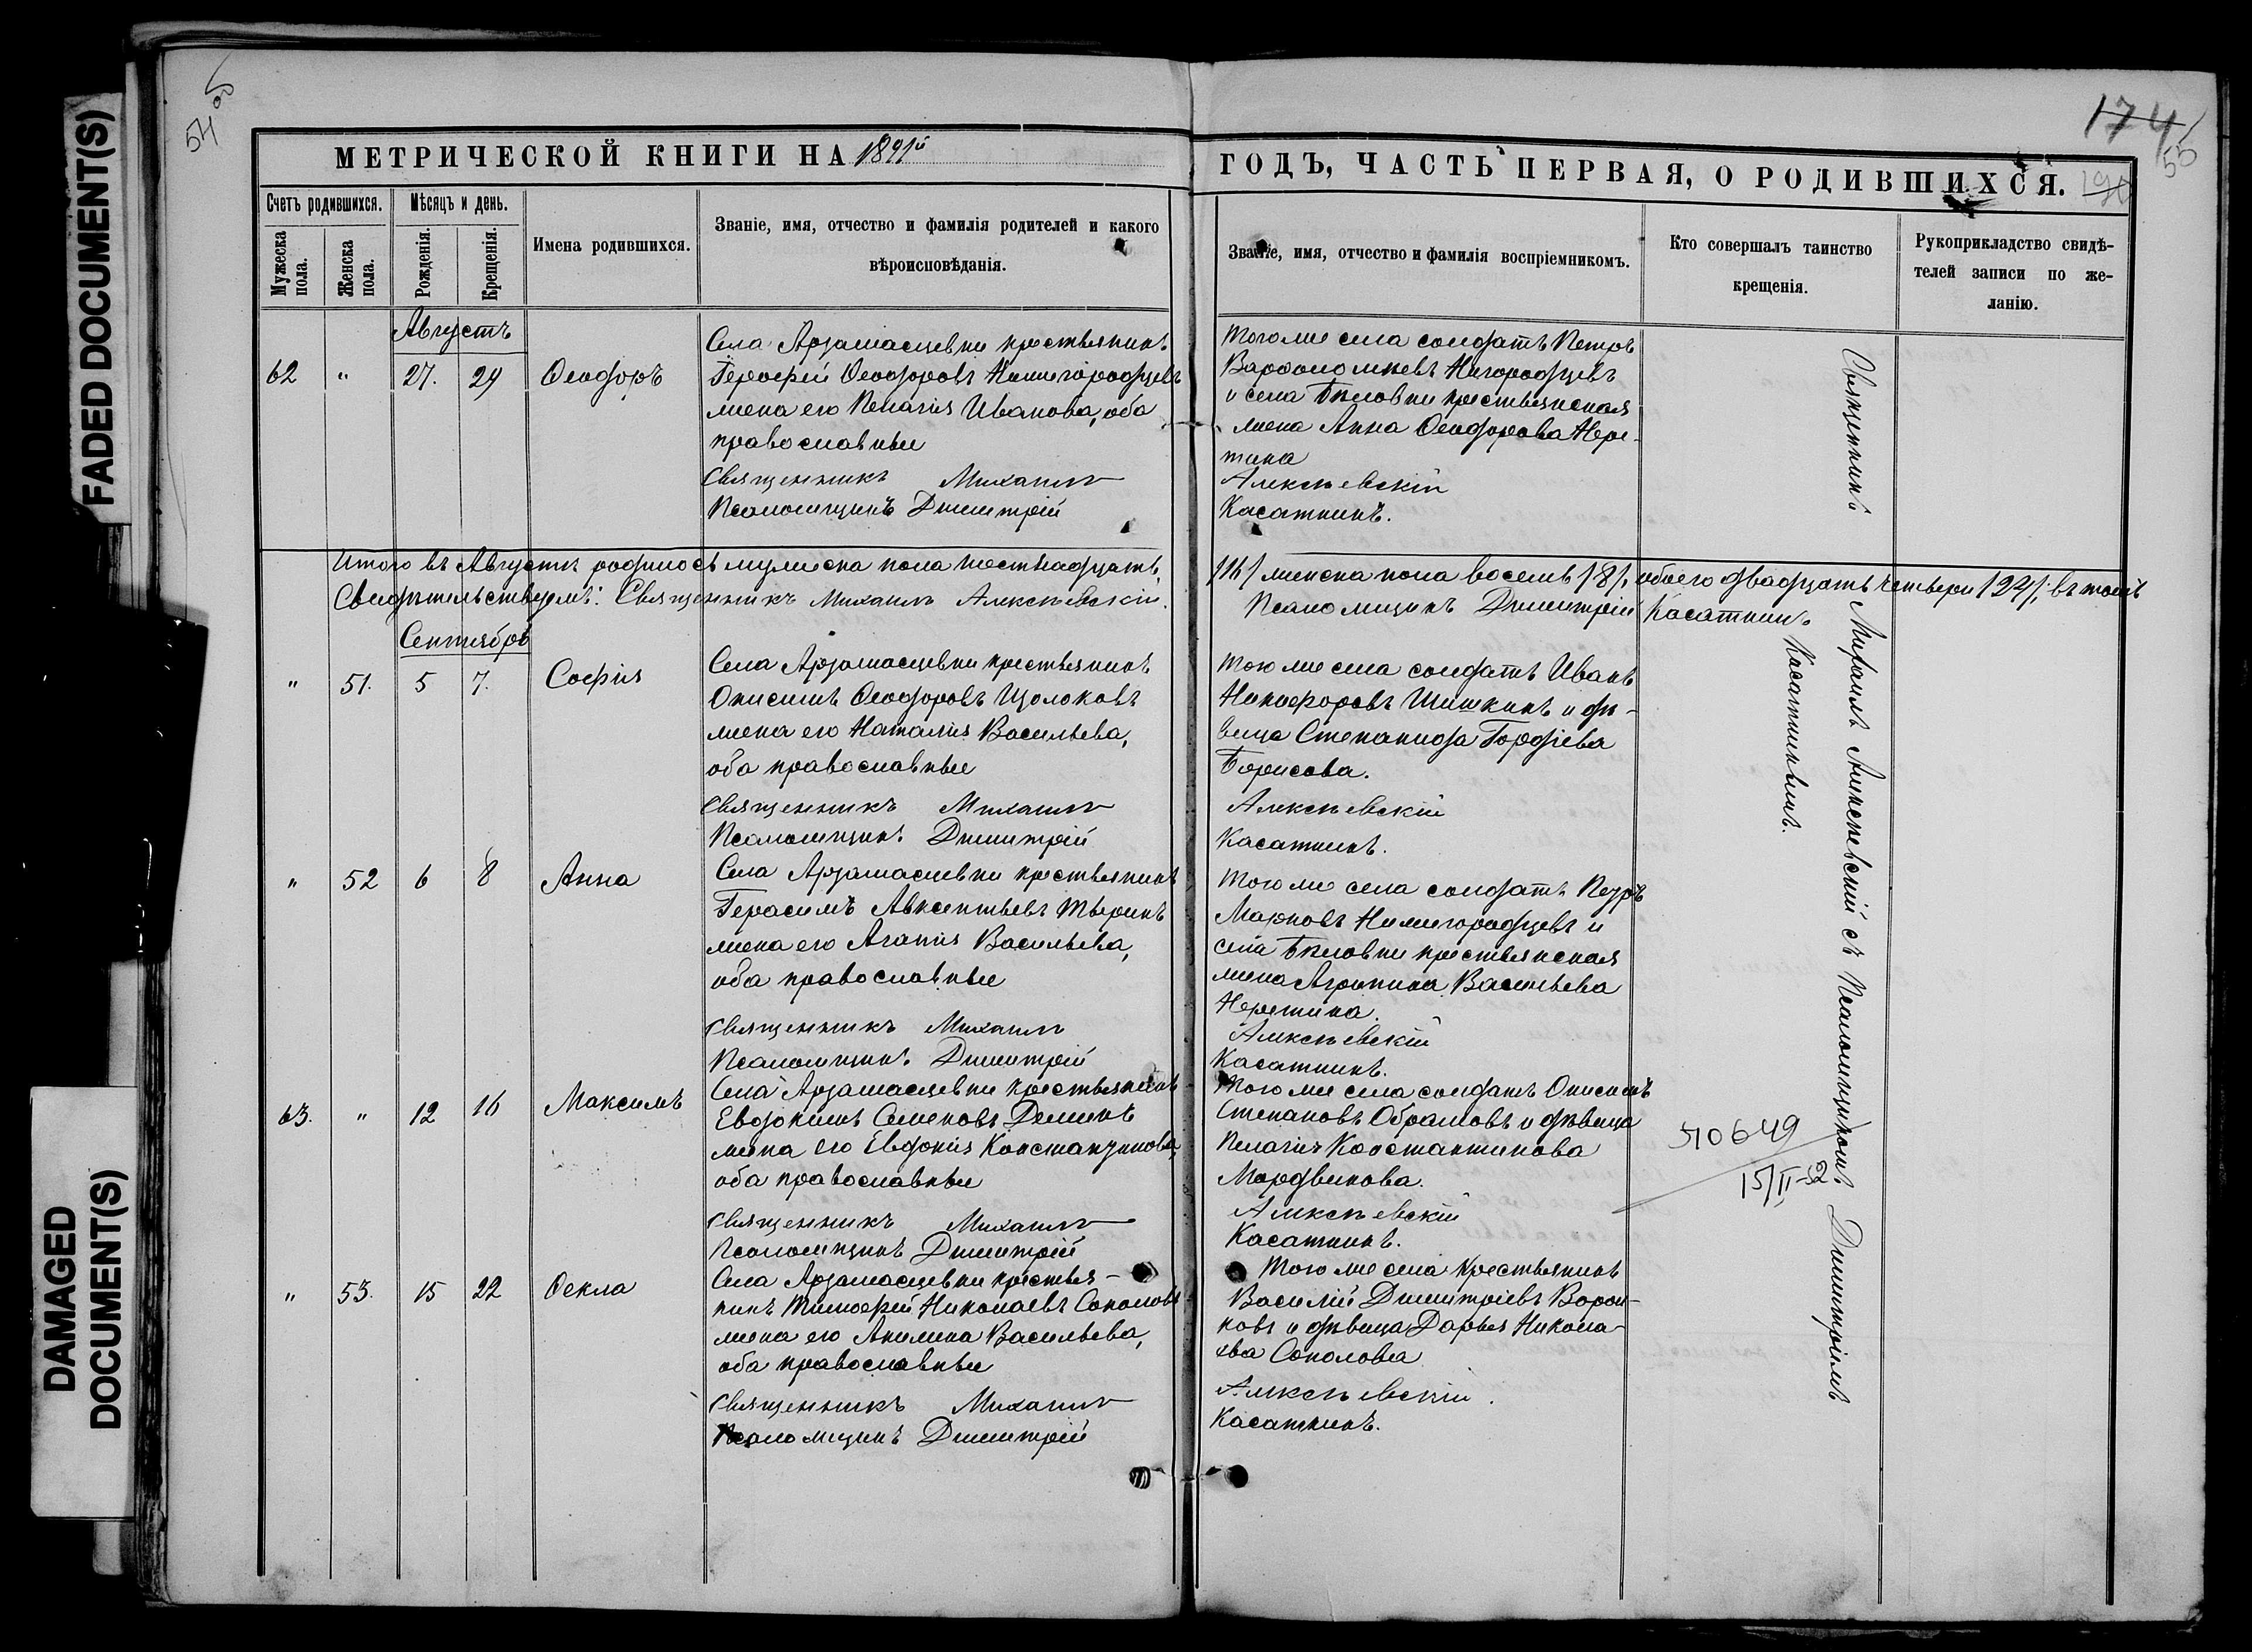 FADED DOCUMENT(S)
DAMAGED
DOCUMENT(S)
54
МЕТРИЧЕСКОЙ КНИГИ НА 1891й
Счетъ родившихся.
Мѣсяцъ и день.
Имена родившихся.
Званіе, имя, отчество и фамилія родителей и какого
вѣроисповѣданія.
Мужеска
пола.
Женска
пола.
Рожденія.
Крещенія.
Августъ
62 " 27. 29 Ѳеодоръ
Села Арзамасцевки крестьянинъ
Ѳеодоровъ Нижегородцевъ
жена его Пелагія Иванова, оба
православные
Священникъ Михаилъ
Псаломщикъ Димитрій
Итого въ Августѣ родилось мужеска пола шестнадцать,
Свидѣтельствуемъ: Священникъ Михаилъ Алексѣевскій.
Сентябрь
" 51. 5 7. Софія
Села Арзамасцевки крестьянинъ
Онисимъ Ѳеодоровъ Щолоковъ
жена его Наталія Васильева,
оба православные
Священникъ Михаилъ
Псаломщикъ Димитрій
" 52 6 8 Анна
Села Арзамасцевки крестьянинъ
Герасимъ Авксентьевъ Тверинъ
жена его Агапія Васильева,
оба православные
Священникъ Михаилъ
Псаломщикъ Димитрій
63. " 12 16 Максимъ
Села Арзамасцевки крестьянинъ
Евдокимъ Семеновъ Деминъ
жена его Евдокія Константинова,
оба православные
Священникъ Михаилъ
Псаломщикъ Димитрій
" 53. 15 22 Ѳекла
Села Арзамасцевки крестья-
нинъ Тимофей Николаевъ Соколовъ
жена его Акилина Васильева,
оба православные
Священникъ Михаилъ
Псаломщикъ Димитрій
174
55
ГОДЪ, ЧАСТЬ ПЕРВАЯ, О РОДИВШИХСЯ.
Званіе, имя, отчество и фамилія воспріемникомъ.
Кто совершалъ таинство
крещенія.
Рукоприкладство свидѣ-
телей записи по же-
ланію.
Тогоже села солдатъ Петръ
Варѳоломѣевъ
и села Бѣловки крестьянская
жена Анна Ѳеодорова Нере-
тина
Алексѣевскій
Касаткинъ.
/16/ женска пола восемь /8/, обоего двадцать четыре /24/; въ томъ
Псаломщикъ Димитрій Касаткинъ
Того же села солдатъ Иванъ
Никифоровъ Шишкинъ и дѣ-
вица Степанида Гордіева
Борисова.
Алексѣевскій
Касаткинъ.
Того же села солдатъ Петръ
Марковъ Нижегородцевъ и
села Бѣловки крестьянская
жена Агрипина Васильева
Неретина.
Алексѣевскій
Касаткинъ.
Того же села солдатъ Онисимъ
Степановъ Обрамовъ и дѣвица
Пелагія Константинова
Мордвинова.
Алексѣевскій
Касаткинъ.
Того же села крестьянинъ
Василій Димитріевъ
ковъ и дѣвица Дарья Никола-
ева Соколова
Алексѣевскій.
Касаткинъ.
Священникъ
Михаилъ Алексѣевскій съ Псаломщикомъ Димитріемъ
Касаткинымъ.
510649
15/II-52